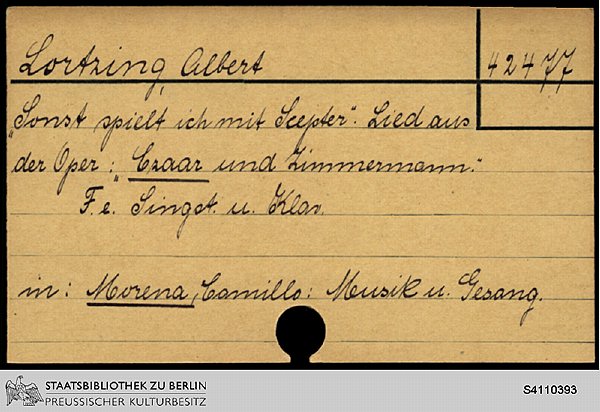 Lortzing, Albert
42477
„Sonst spielt ich mit Scepter". Lied aus
der Oper: „Czaar und Zimmermann."
F. e. Singst. u. Klav.
in: Morena, Camillo: Musik u. Gesang.
STAATSBIBLIOTHEK ZU BERLIN
PREUSSISCHER KULTURBESITZ
S4110393